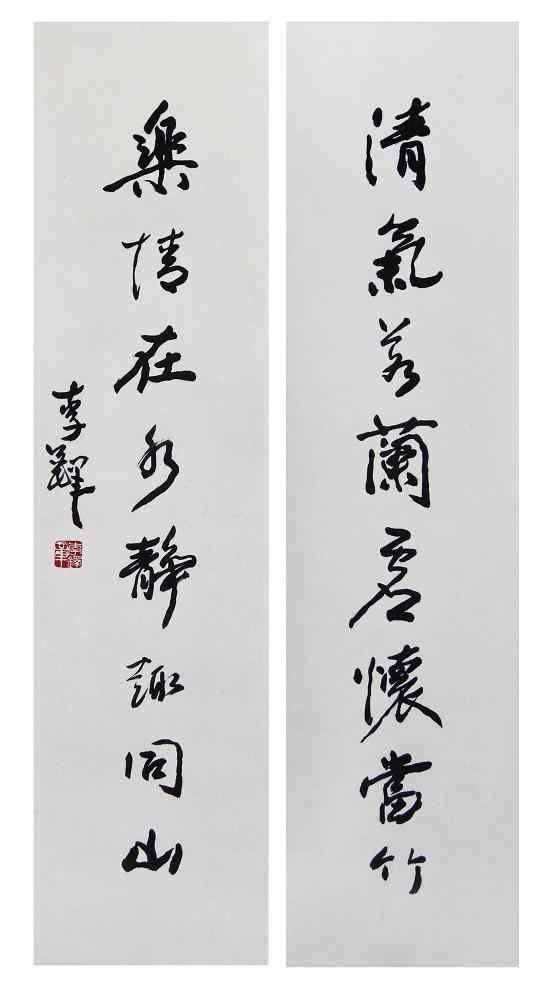 清氣若蘭虛懷當竹
樂情在水靜趣同山
李鐸